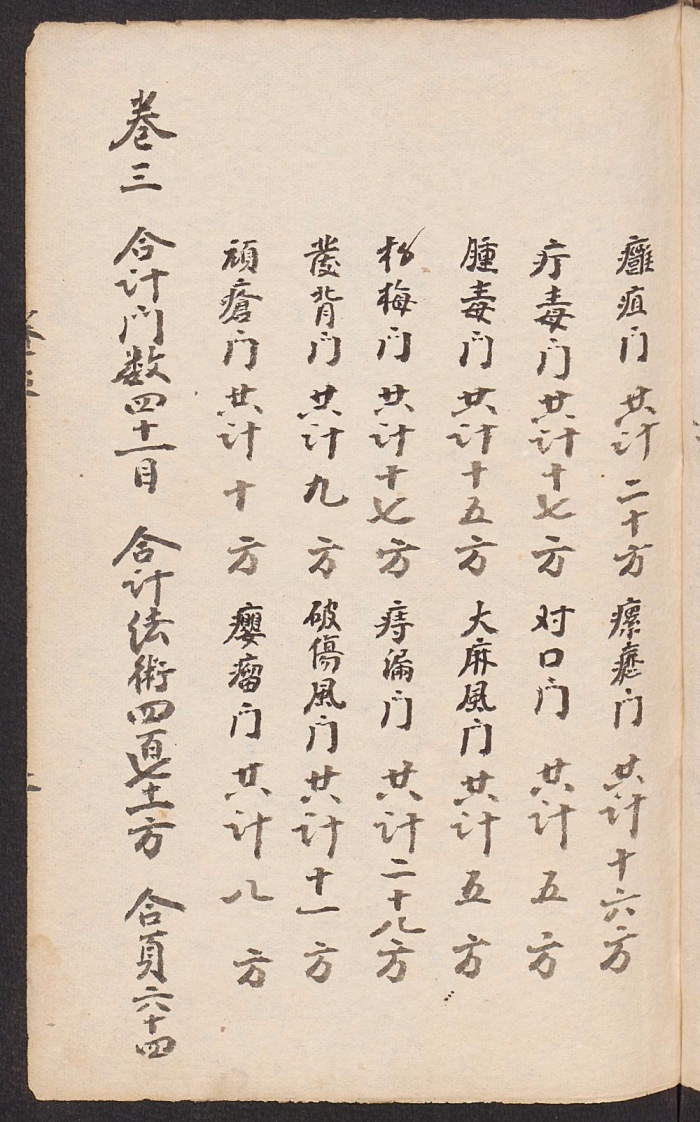 癰疽门 共计二十方 瘰癧门 共计十六方
疔毒门 共计十七方 对口门 共计五方
腫毒门 共计十五方 大麻風门 共计五方
杨梅门 共计十七方 痔漏门 共计二十八方
發背门 共计九方 破傷風门 共计十一方
頑瘡门 共计十方 癭瘤门 共计八方
卷三 合计门数四十一目 合计法術四百七十二方 合頁六十四